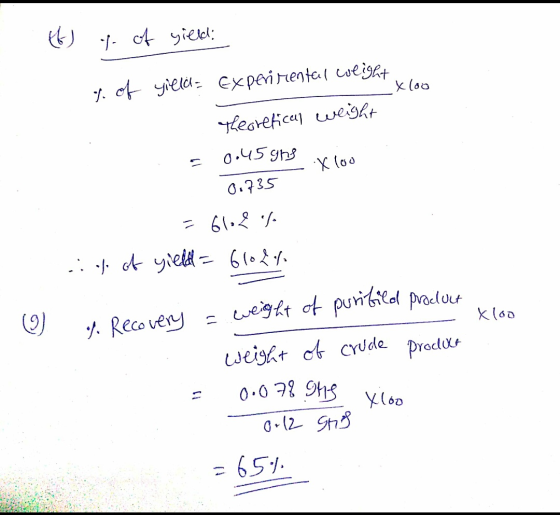 (f) % of yield:
% of yield = Experimental weight × 100
Theoretical weight
= 0.45 gms × 100
0.735
= 61.2 %
∴ % of yield = 61.2 %
(g) % Recovery = weight of purified product × 100
weight of crude product
= 0.078 gms × 100
0.12 gms
= 65 %